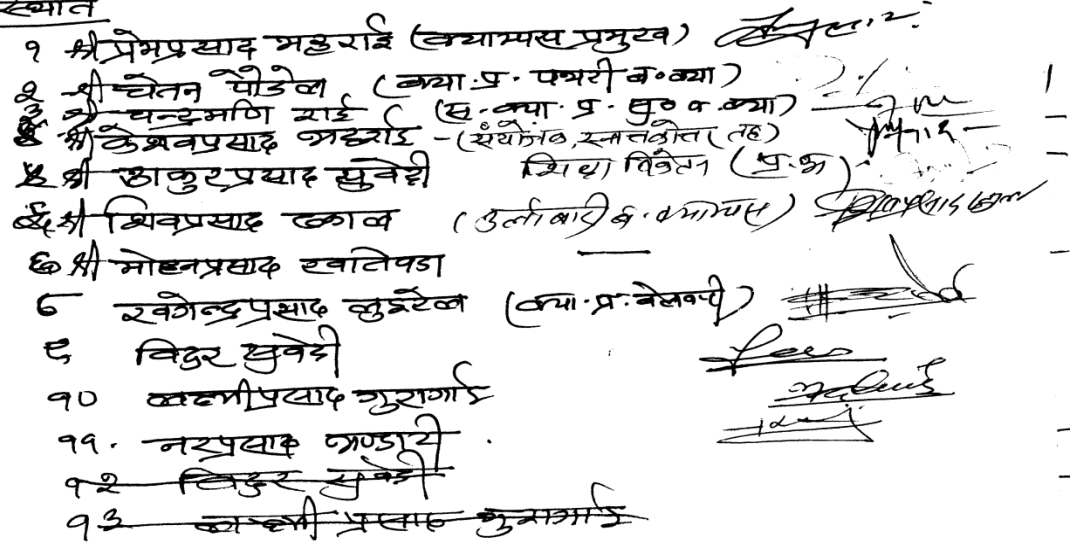 स्थान
१ श्री प्रेमप्रसाद भट्टराई (क्याम्पस प्रमुख)
२ श्री चेतन पौडेल (क्या.प्र. पथरी ब.क्या)
३ श्री चन्द्रमणि राई (स.क्या.प्र. सु० ब.क्या)
४ श्री केशवप्रसाद भट्टराई - (संयोजक, स्नातकोत्तर तह)
५ श्री ठाकुरप्रसाद सुवेदी शिक्षा निकेतन (प्र.अ)
६ श्री शिवप्रसाद ढकाल (उर्लाबारी ब.क्याम्पस)
७ श्री मोहनप्रसाद खतिवडा
८ खगेन्द्रप्रसाद लुइटेल (क्या.प्र. बेलबारी)
९ विदुर सुवेदी
१० लक्ष्मीप्रसाद गुरागाई
११. नरप्रसाद भण्डारी
१२ विदुर सुवेदी
१३ लक्ष्मी प्रसाद गुरागाई